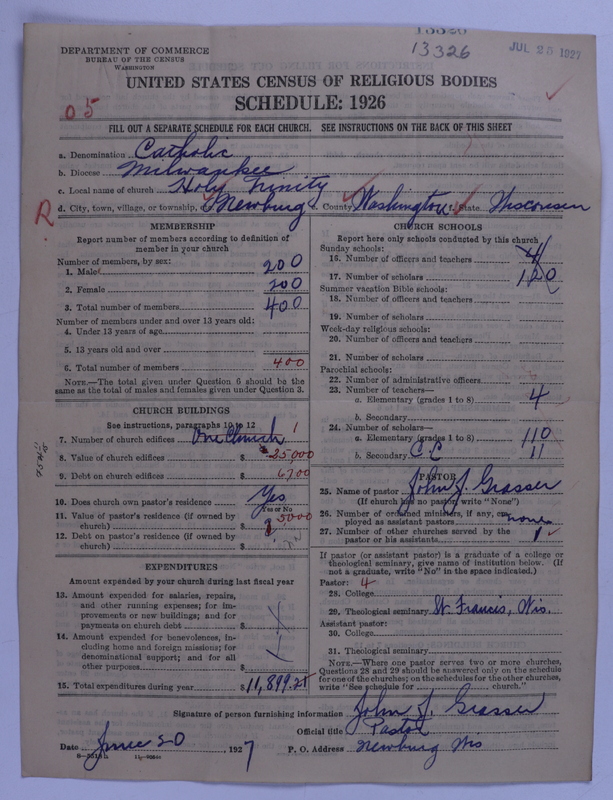 13326
DEPARTMENT OF COMMERCE
BUREAU OF THE CENSUS
WASHINGTON
13326
JUL 25 1927
UNITED STATES CENSUS OF RELIGIOUS BODIES
SCHEDULE: 1926
05
FILL OUT A SEPARATE SCHEDULE FOR EACH CHURCH. SEE INSTRUCTIONS ON THE BACK OF THIS SHEET
a. Denomination Catholic
b. Diocese Milwaukee
c. Local name of church Holy Trinity
R
d. City, town, village, or township, Newburg e. County Washington f. State Wisconsin
MEMBERSHIP
Report number of members according to definition of
member in your church
Number of members, by sex:
1. Male 200
2. Female 200
3. Total number of members 400
Number of members under and over 13 years old:
4. Under 13 years of age
5. 13 years old and over
6. Total number of members 400
NOTE.—The total given under Question 6 should be the
same as the total of males and females given under Question 3.
CHURCH BUILDINGS
See instructions, paragraphs 10 to 12
7. Number of church edifices One Church 1
8. Value of church edifices $ 25,000
9. Debt on church edifices $ 6700
10. Does church own pastor's residence Yes
Yes or No
11. Value of pastor's residence (if owned by
church) $ 5000
12. Debt on pastor's residence (if owned by
church) $
EXPENDITURES
Amount expended by your church during last fiscal year
13. Amount expended for salaries, repairs,
and other running expenses; for im-
provements or new buildings; and for
payments on church debt $
14. Amount expended for benevolences, in-
cluding home and foreign missions; for
denominational support; and for all
other purposes $
15. Total expenditures during year $ 11,899.21
CHURCH SCHOOLS
Report here only schools conducted by this church
Sunday schools:
16. Number of officers and teachers 4
17. Number of scholars 120
Summer vacation Bible schools:
18. Number of officers and teachers
19. Number of scholars
Week-day religious schools:
20. Number of officers and teachers
21. Number of scholars
Parochial schools:
22. Number of administrative officers
23. Number of teachers—
a. Elementary (grades 1 to 8) 4
b. Secondary
24. Number of scholars—
a. Elementary (grades 1 to 8) 110
b. Secondary C C 11
PASTOR
25. Name of pastor John J. Grasser
(If church has no pastor, write "None")
26. Number of ordained ministers, if any, em-
ployed as assistant pastors none
27. Number of other churches served by the
pastor or his assistants 1
If pastor (or assistant pastor) is a graduate of a college or
theological seminary, give name of institution below. (If
not a graduate, write "No" in the space indicated.)
Pastor: 4
28. College
29. Theological seminary St. Francis, Wis.
Assistant pastor:
30. College
31. Theological seminary
NOTE.—Where one pastor serves two or more churches,
Questions 28 and 29 should be answered only on the schedule
for one of the churches; on the schedules for the other churches,
write "See schedule for church."
Signature of person furnishing information John J. Grasser
Official title Pastor
Date June 20, 1927 P. O. Address Newburg Wis